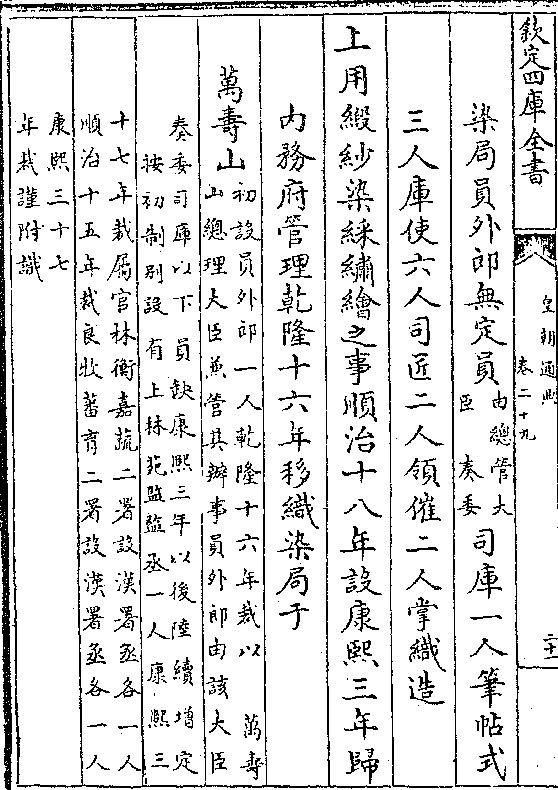 欽定四庫全書
皇朝通典
卷二十九
二十一
染局員外郎無定員
由總管大
臣 奏委
司庫一人筆帖式
三人庫使六人司匠二人領催二人掌織造
上用緞紗染綵繡繪之事順治十八年設康熙三年歸
内務府管理乾隆十六年移織染局于
萬壽山
初設員外郎一人乾隆十六年裁以 萬壽
山總理大臣兼管其辦事員外郎由該大臣
奏委司庫以下員缺康熙三年以後陸續增定
按初制別設有上林苑監監丞一人康熙三
十七年裁屬官林衡嘉蔬二署設漢署丞各一人
順治十五年裁良牧蕃育二署設漢署丞各一人
康熙三十七
年裁謹附識